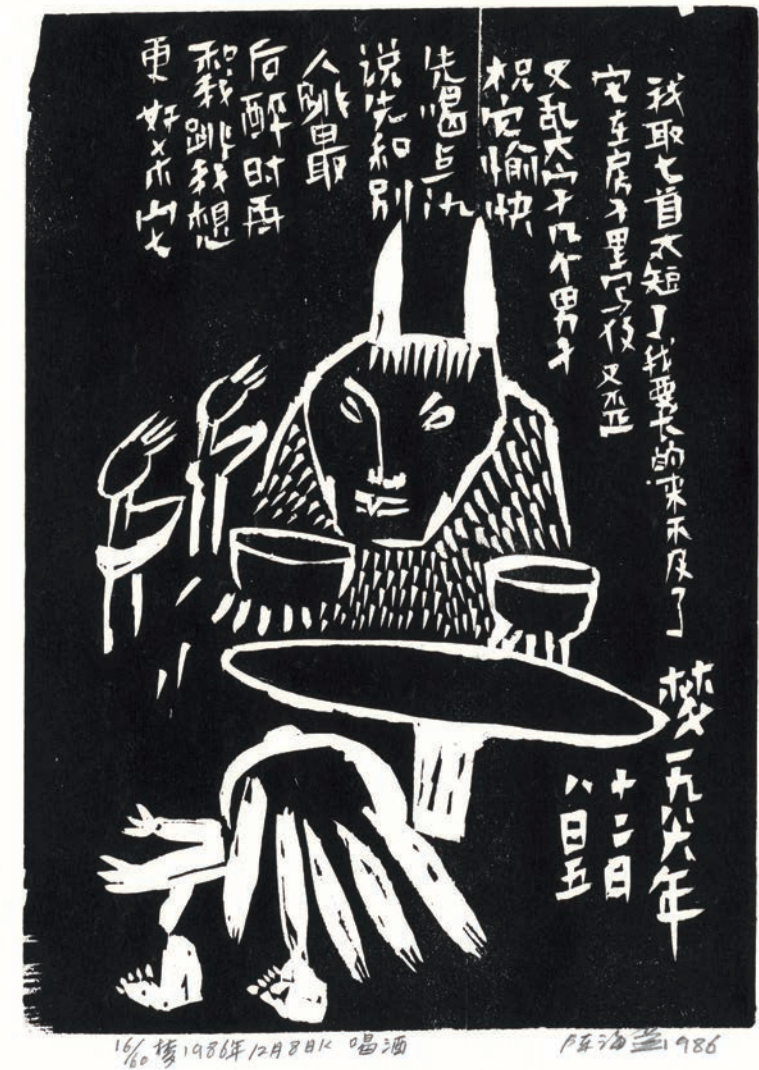 我取匕首太短了我要长的来不及了
它在房子里
又乱
几个男子
祝觉愉快
先喝点酒
说先和别
人跳最
后醉时再
和我跳我想
更好
梦一九八六年
十二日
八日五
16/60 梦1986年12月8日 喝酒 陈海燕1986